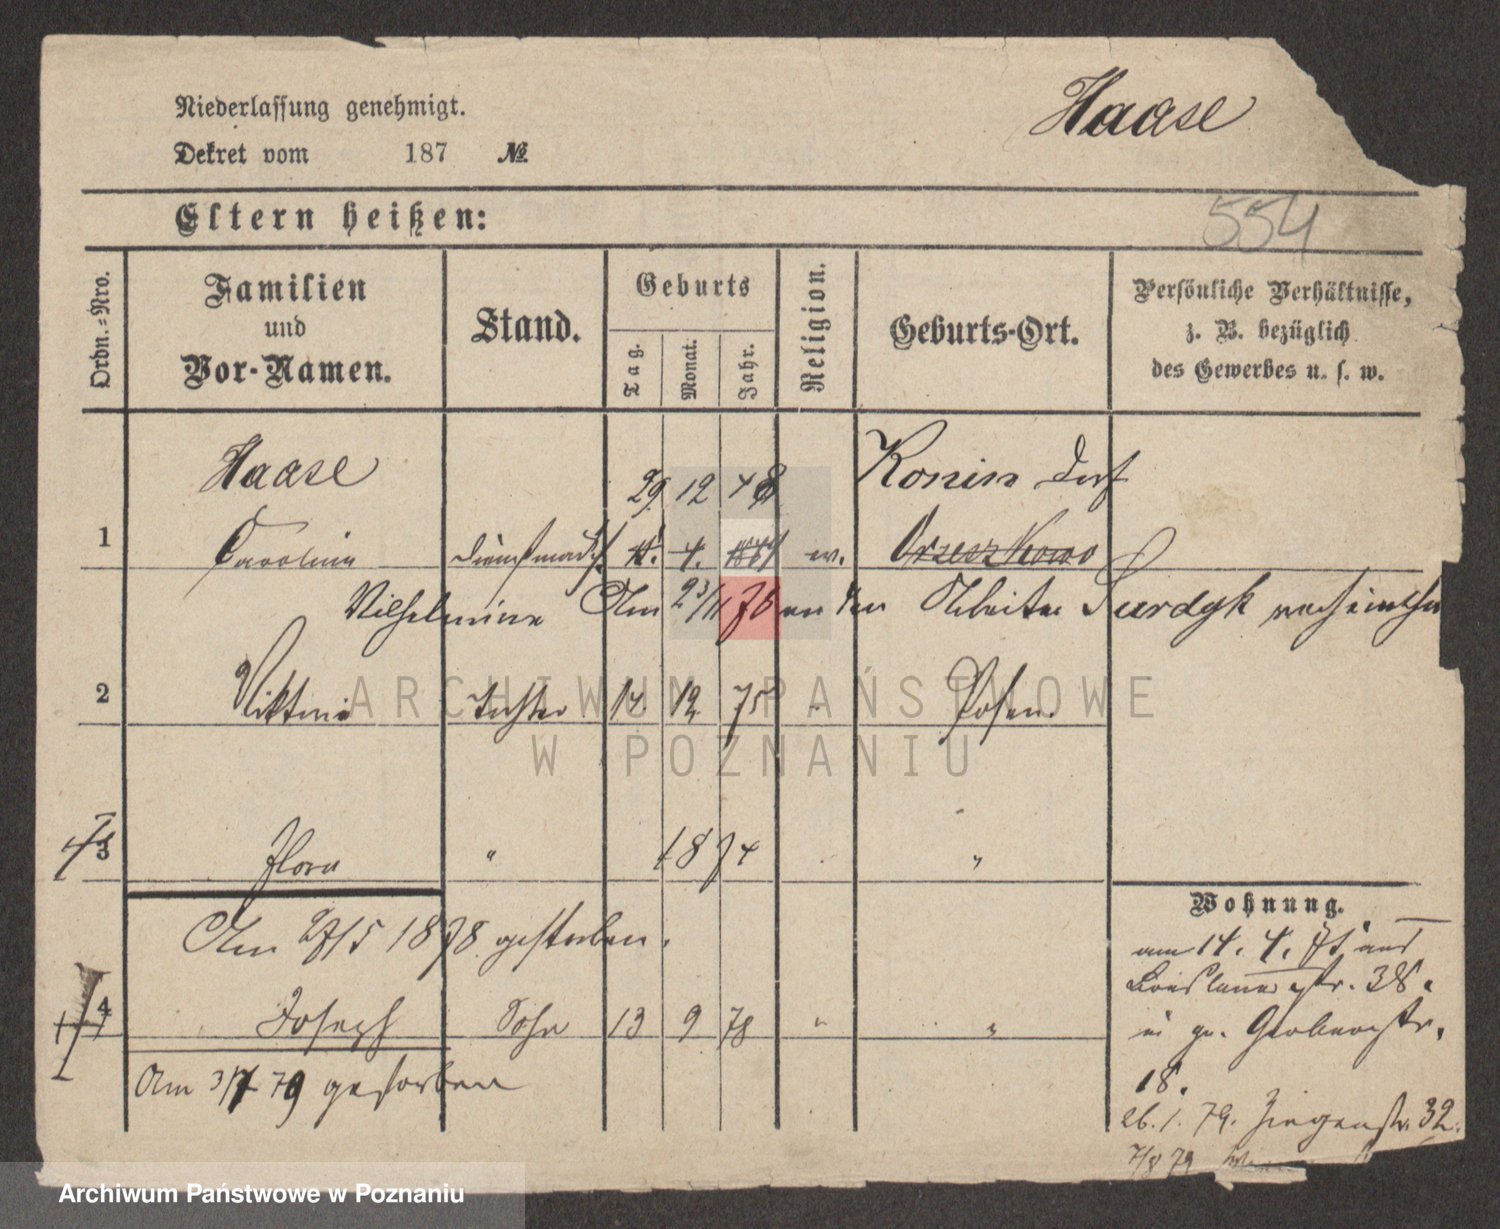 Niederlassung genehmigt.
Haase
Dekret vom 187 №
Eltern heißen:
554
Ordn.=Nro.
Familien
und
Vor-Namen.
Stand.
Geburts
Tag.
Monat.
Jahr.
Religion.
Geburts-Ort.
Persönliche Verhältnisse,
z. B. bezüglich
des Gewerbes u. s. w.
Haase 29 12 48 Konin Dorf
1 Caroline 4. ev. Orzeszkowo
Wilhelmine Am 23/11 78 an den Arbeiter Surdyk
2 Tochter 14. 12 75 Posen.
ARCHIWUM PAŃSTWOWE
W POZNANIU
3 Flora " 1874 "
Wohnung.
Am 27/5 1878 gestorben.
am 14. 4. aus
Breslauerstr. 38.
4 Joseph Sohn 13 9 78 " "
in gr. Gerberstr.
18.
Am 3/7 79 gestorben
26. 1. 79. Ziegenstr. 32.
7/8 79
Archiwum Państwowe w Poznaniu